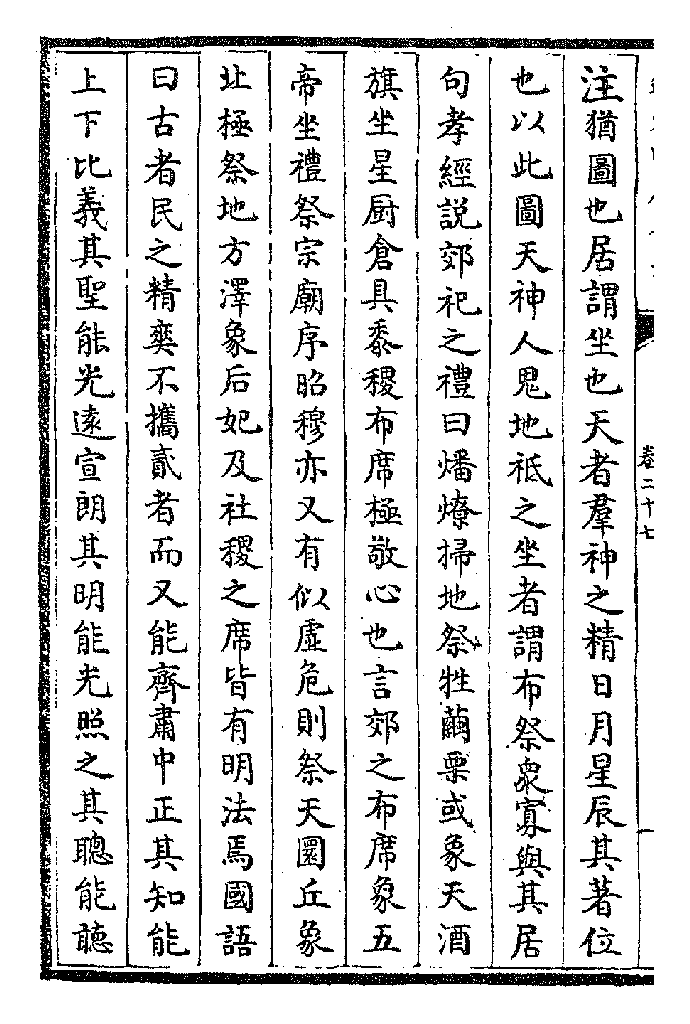 注猶圖也居謂坐也天者羣神之精日月星辰其著位
也以此圖天神人鬼地祇之坐者謂布祭衆寡與其居
句孝經說郊祀之禮曰燔燎掃地祭牲繭栗或象天酒
旗坐星厨倉具黍稷布席極敬心也言郊之布席象五
帝坐禮祭宗廟序昭穆亦又有似虛危則祭天圜丘象
北極祭地方澤象后妃及社稷之席皆有明法焉國語
曰古者民之精爽不攜貳者而又能齊肅中正其知能
上下比義其聖能光遠宣朗其明能光照之其聰能聽
卷二十七
一